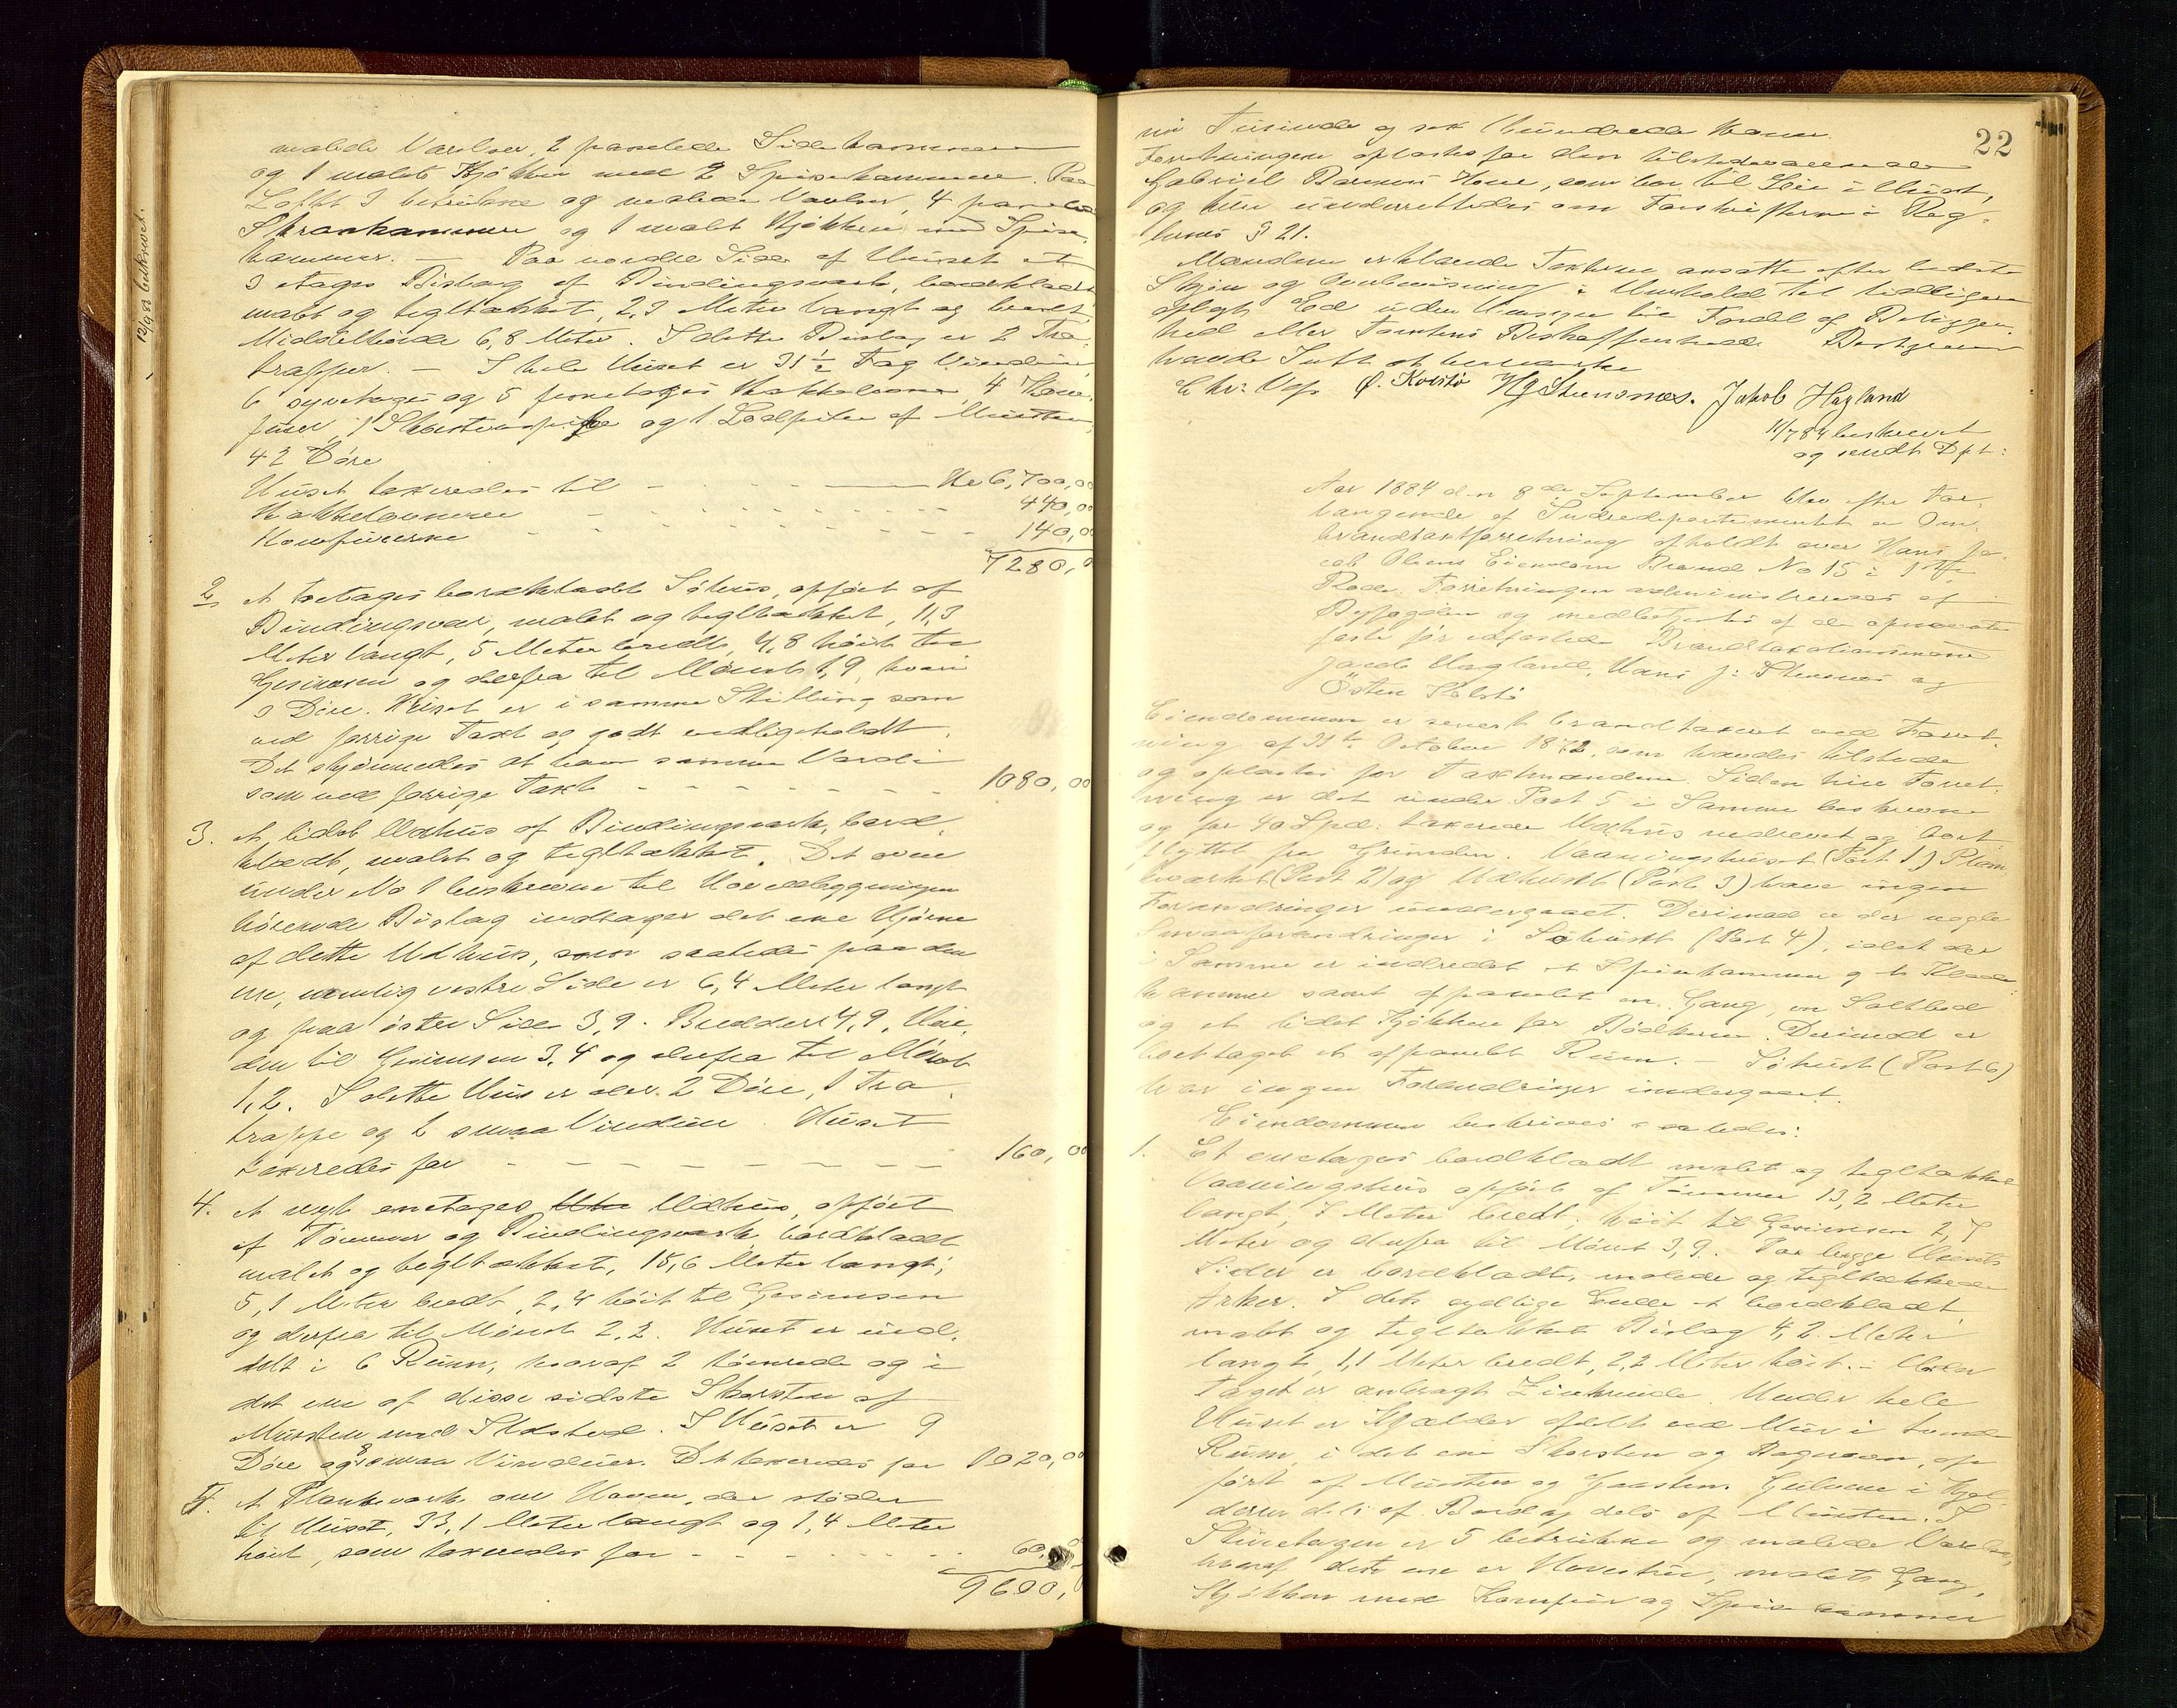 malede Værelser, 2 panelede Sidekammere
og 1 malet Kjøkken med 2 Spisekammere. Paa
Loftet 3 betrukne og malede Værelser, 4 panelede
Skraakammere og 1 malt Kjøkken med Spise-
kammer. — Paa nordre Side af Huset et
3 etages Bislag af Bindingsværk, bordklædt
malt og tegltækket, 2,3 Meter langt og bredt
Middelhøide 6,8 Meter. I dette Bislag er 2 Træ-
trapper. — I hele Huset er 31½ Fag Vinduer
6 syvetages og 5 femetages Kakkelovne, 4 Kom-
furer, 1 Skorstenspibe og 1 Lodpibe af Mursten,
42 Døre
Huset taxeredes til — Kr 6,700,00
Kakkelovnene 440,00
Komfurerne 140,00
7280,0
2. et toetages bordklædt Søhus, opført af
Bindingsværk, malet og tegltækket, 11,3
Meter langt, 5 Meter bredt, 4,8 høit til
Gesimsen og derfra til Mønet 1,9, hvori
9 Døre. Huset er i samme Stilling som
ved forrige Taxt og godt vedligeholdt.
Det skjønnedes at have samme Værdi
som ved forrige Taxt 1080,00
3. et lidet Udhus af Bindingsværk, bord-
klædt, malet og tegltækket. Det oven
under No 1 beskrevne til Hovedbygningen
hørende Bislag indtager det ene Hjørne
af dette Udhus, som saaledes paa den
ene, nemlig vestre Side er 6,4 Meter langt
og paa østre Side 3,9. Bredden 4,9, Høi-
den til Gesimsen 3,4 og derfra til Mønet
1,2. I dette Hus er der 2 Døre, 1 Træ-
trappe og 2 smaa Vinduer. Huset
taxeredes for 160,00
4. et nyt enetages Udhus, opført
af Tømmer og Bindingsværk, bordklædt
malet og tegltækket, 15,6 Meter langt,
5,1 Meter bredt, 2,4 høit til Gesimsen
og derfra til Mønet 2,2. Huset er ind-
delt i 6 Rum, hvoraf 2 tømrede og i
det ene af disse sidste Skorsten af
Mursten med Ildsted. I Huset er 9
Døre og 8 smaa Vinduer. Det taxeredes for 1020,00
5. et Plankeværk om Haven, der støder
til Huset, 33,1 Meter langt og 1,4 Meter
høit, som taxeredes for 60,0
9600,
12/9 83 beskrevet.
22
ni Tusinde og sex Hundrede Kroner.
Forretningen oplæstes for den tilstedeværende
Gabriel Hone, som bor til Leie i Huset,
og han underrettedes om Forskrifterne i Reg-
lernes § 21.
Mændene erklærede Taxterne ansatte efter bedste
Skjøn og Overbevisning i Henhold til tidligere
aflagt Ed uden Hensyn til Fordel af Beliggen-
hed eller Tomtens Beskaffenhed.
havde Intet at bemærke
Chr: Ø. Kolstø HJ Stensnæs. Jakob Hagland
11/7 84 beskrevet
og sendt Dpt:
Aar 1884 den 8de September blev efter For-
langende af Indredepartementet en Om-
brandtaxtforretning afholdt over Hans Ja-
cob Olsens Eiendom Brand No 15 i 1ste
Rode. Forretningen administreredes af
Byfogden og medbetjentes af de opnævnte
faste før edfæstede Brandtaxationsmænd
Jacob Hagland, Hans J: Stensnæs og
Østen Kolstø
Eiendommen er senest brandtaxeret ved Forret-
ning af 31te October 1872, som havdes tilstede
og oplæstes for Taxtmændene. Siden hin Forret-
ning er det under Post 5 i Samme beskrevne
og for 40 Spd: taxerede Udhus nedrevet og bort-
flyttet fra Grunden. Vaaningshuset (Post 1) Plan-
keværket (Post 2) og Udhuset (Post 3) have ingen
Forandringer undergaaet. Derimod er der nogle
Smaaforandringer i Søhuset (Post 4), idet der
i Samme er indredet et Spisekammer og et Klæde-
kammer samt afpanelet en Gang, en Saltbod
og et lidet Kjøkken for Bødkeren. Derimod er
borttaget et afpanelt Rum. — Søhuset (Post 6)
har ingen Forandringer undergaaet.
Eiendommen beskrives saaledes:
1. Et enetages bordklædt malet og tegltækket
Vaaningshus opført af Tømmer 13,2 Meter
langt, 7 Meter bredt, høit til Gesimsen 2,7
Meter og derfra til Mønet 3,9. Paa begge Husets
Sider er bordklædte, malede og tegltækkede
Arker. I dets sydlige Ende et bordklædt,
malt og tegltækket Bislag 4,2 Meter
langt, 1,1 Meter bredt, 2,2 Meter høit. — Under
Taget er anbragt Zinkrende. Under hele
Huset er Kjælder afdelt ved Mur i tvende
Rum, i det ene Skorsten og Bagerovn, op-
ført af Mursten og Graasten. Gulvene i Kjæl-
deren dels af Bord og dels af Mursten. I
Stueetagen er 5 betrukne og malede Værelser,
hvoraf det ene er Havestue, malet Gang,
Kjøkken med Komfur og Spisekammer